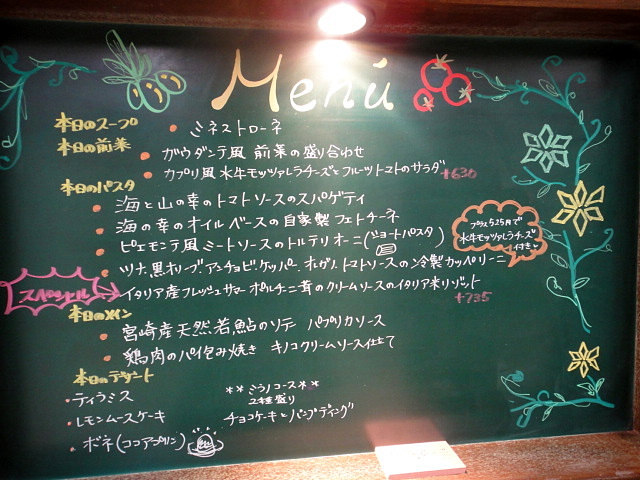 Menú
本日のスープ
・ミネストローネ
本日の前菜
・ガウダンテ風 前菜の盛り合わせ
・カプリ風 水牛モッツァレラチーズとフルーツトマトのサラダ +630
本日のパスタ
・海と山の幸のトマトソースのスパゲティ
・海の幸のオイルベースの自家製フェトチーネ
・ピエモンテ風ミートソースのトルテリオーニ(ショートパスタ)
プラス525円で
水牛モッツァレラチーズ
付き
・ツナ、黒オリーブ、アンチョビ、ケッパー、オレガノ、トマトソースの冷製カッペリーニ
スペシャル
イタリア産フレッシュサマーポルチーニ茸のクリームソースのイタリア米リゾット
+735
本日のメイン
・宮崎産天然若鮎のソテー パプリカソース
・鶏肉のパイ包み焼き キノコクリームソース仕立て
本日のデザート
・ティラミス
・レモンムースケーキ
・ボネ(ココアプリン)
**ミラノコース**
2種盛り
チョコケーキとパンプディング